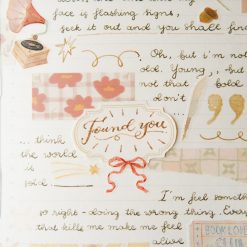 face is flashing signs,
seek it out and you shall fin
Oh, but i'm not
old. Young, , but
not that bold
don't ...
Found you
... think
the world
is
sold...
I'm feel somet
so right - doing the wrong thing. Ever
that kills me make me feel
alive
BOOK LOVE